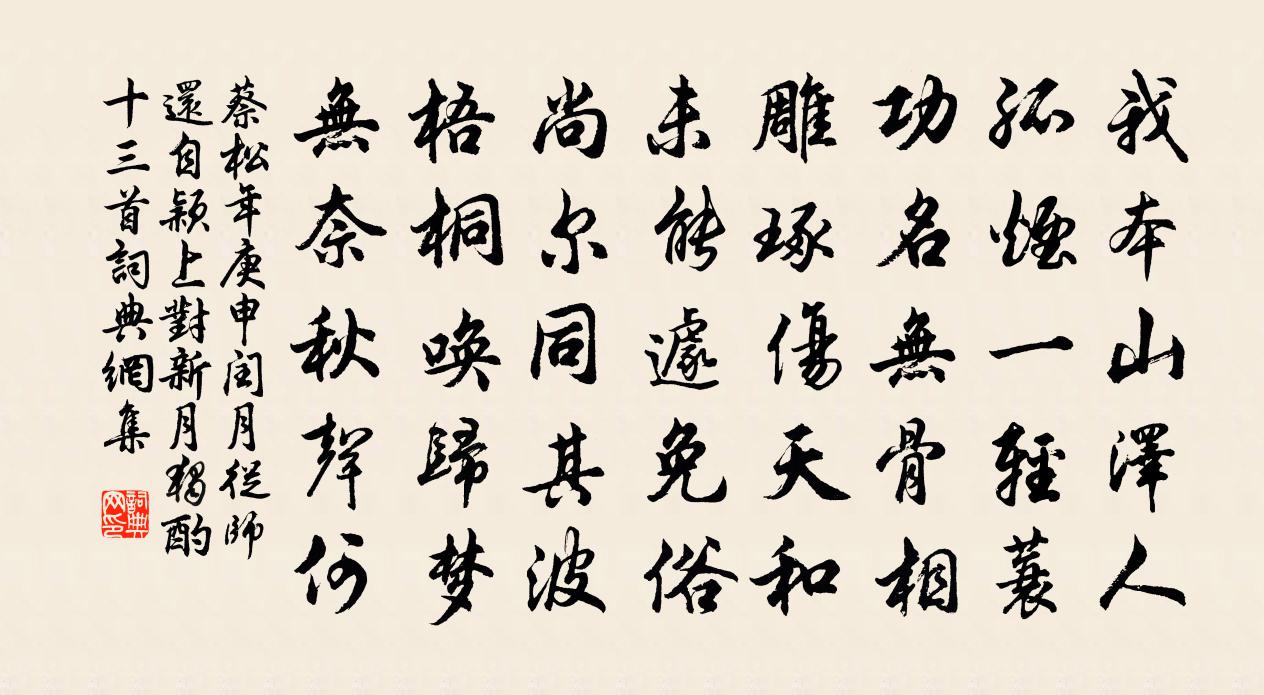 我本山澤人
孤煙一輕蓑
功名無骨相
雕琢傷天和
未能遽免俗
尚尔同其波
梧桐喚歸梦
無奈秋聲何
蔡松年庚申閏月從師
還自潁上對新月獨酌
十三首詞典網集
詞典
网印